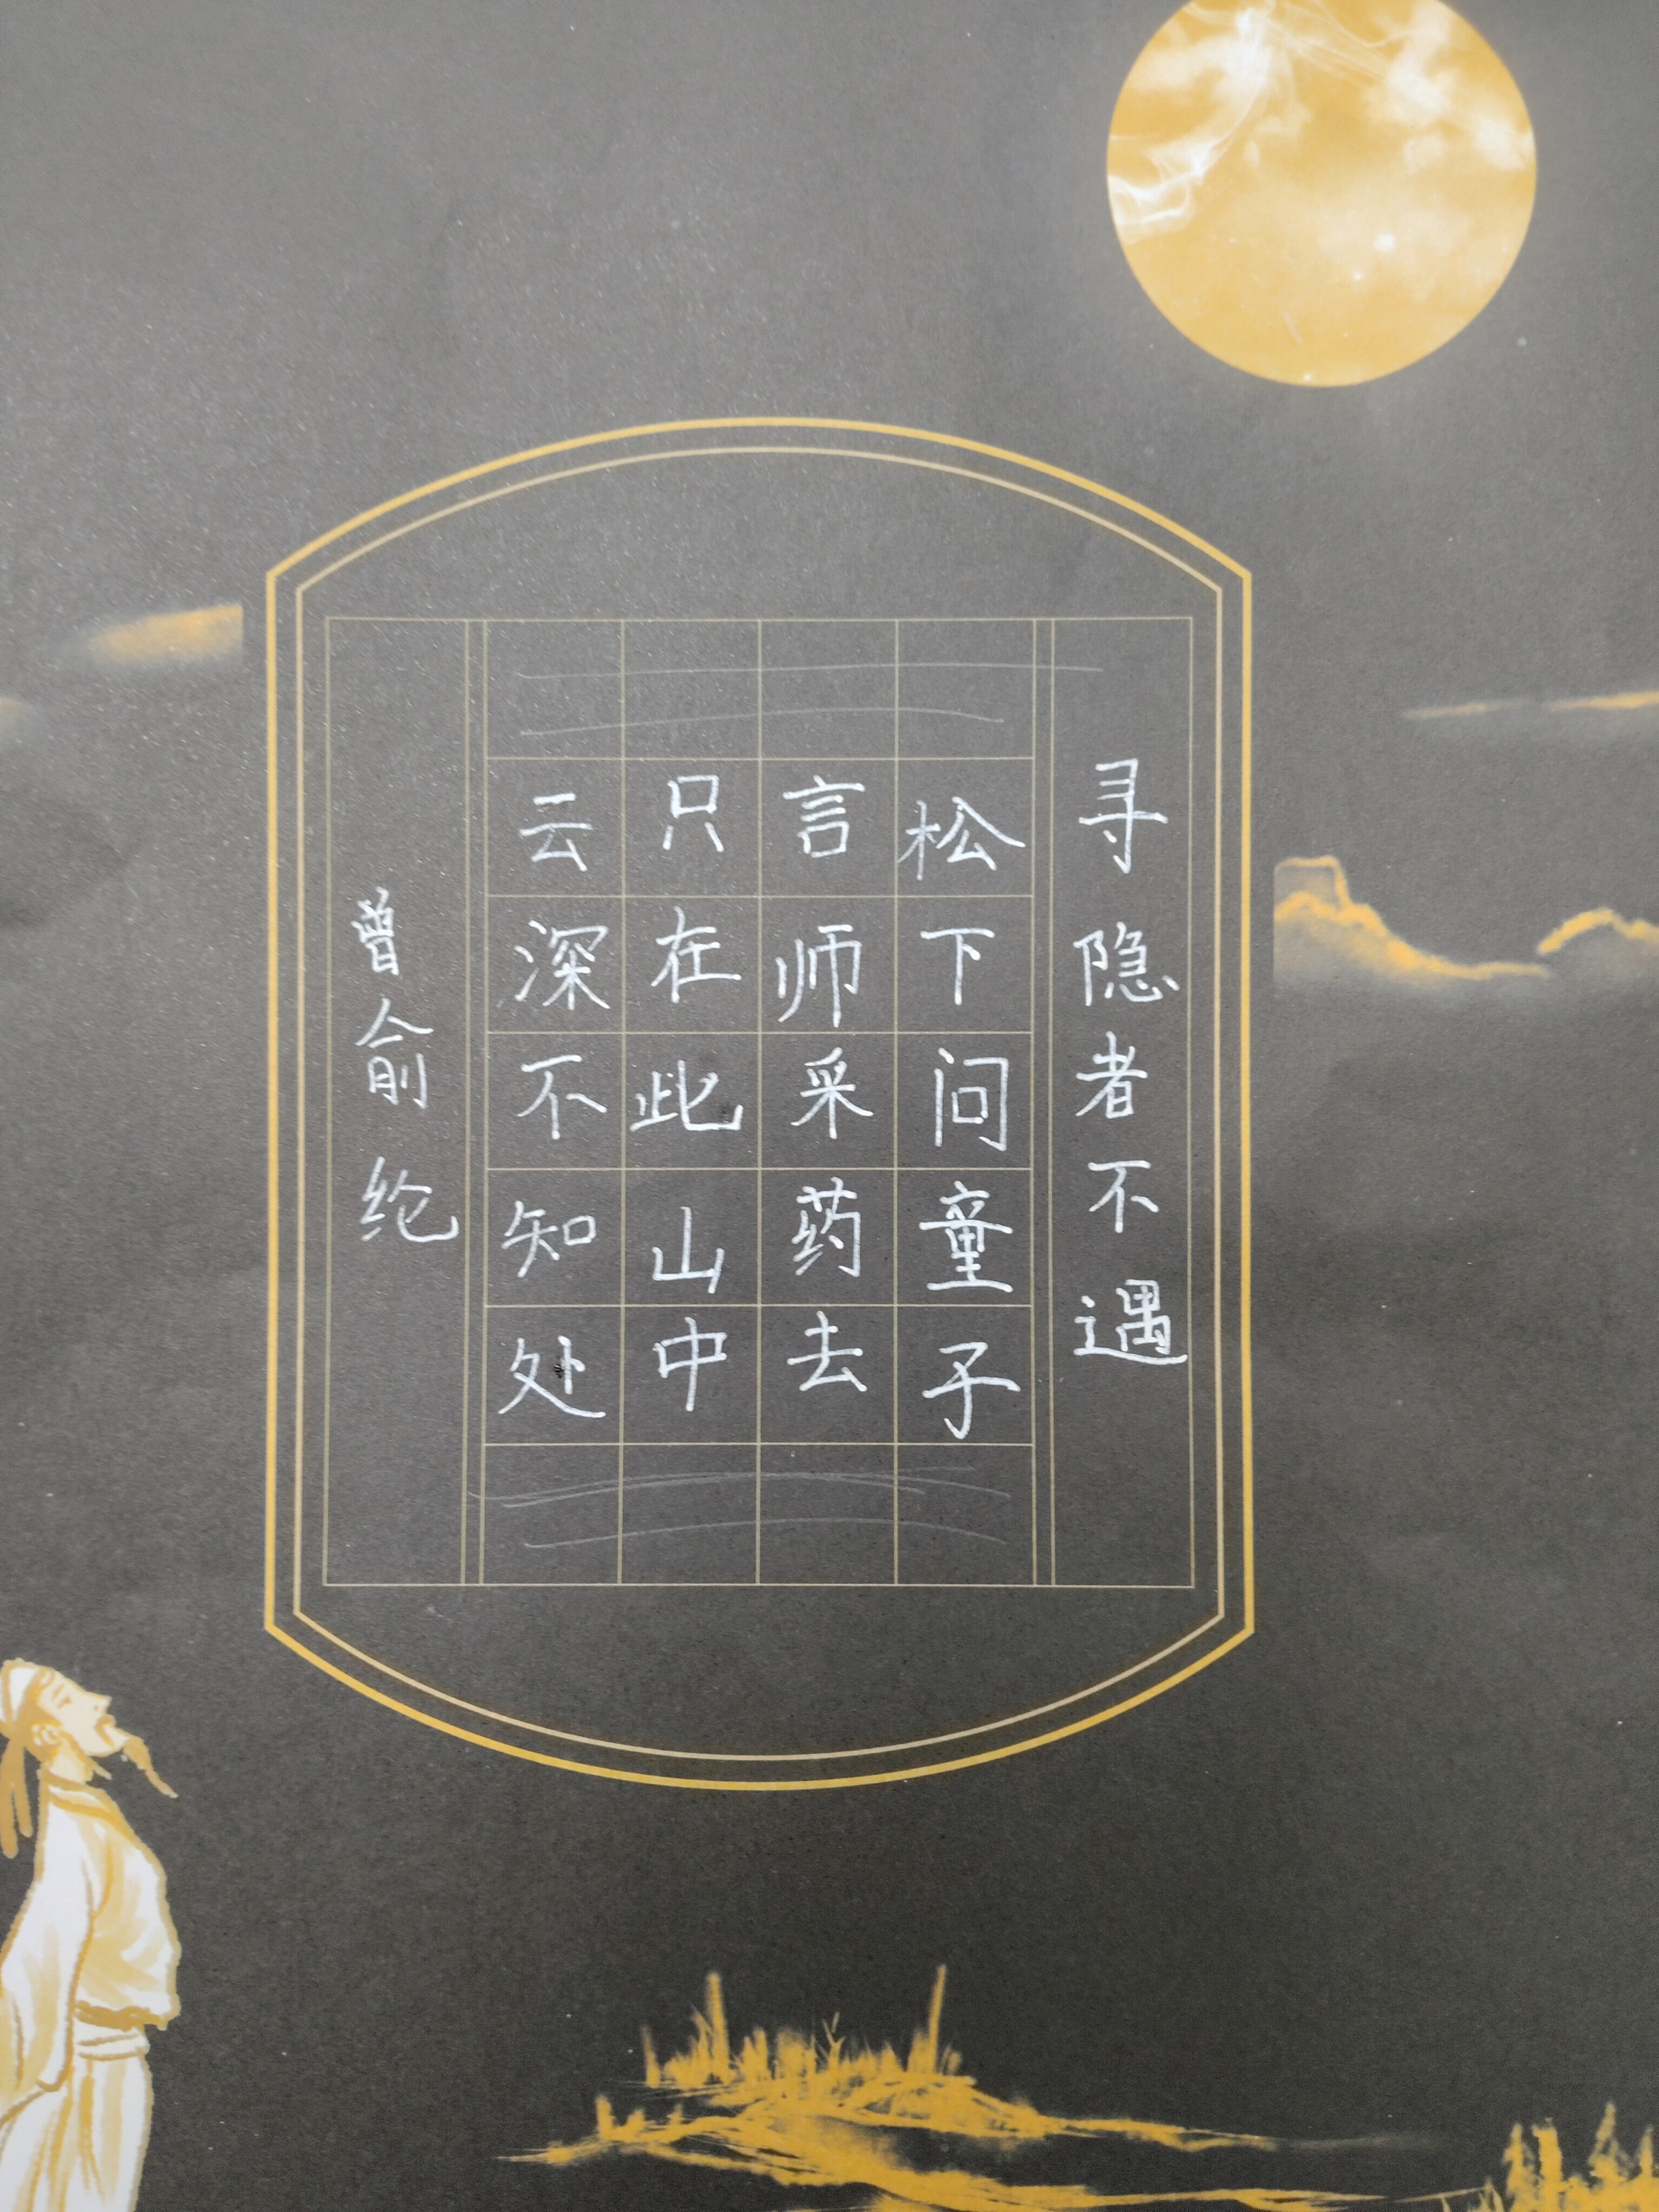 寻隐者不遇
松下问童子
言师采药去
只在此山中
云深不知处
曾俞纶